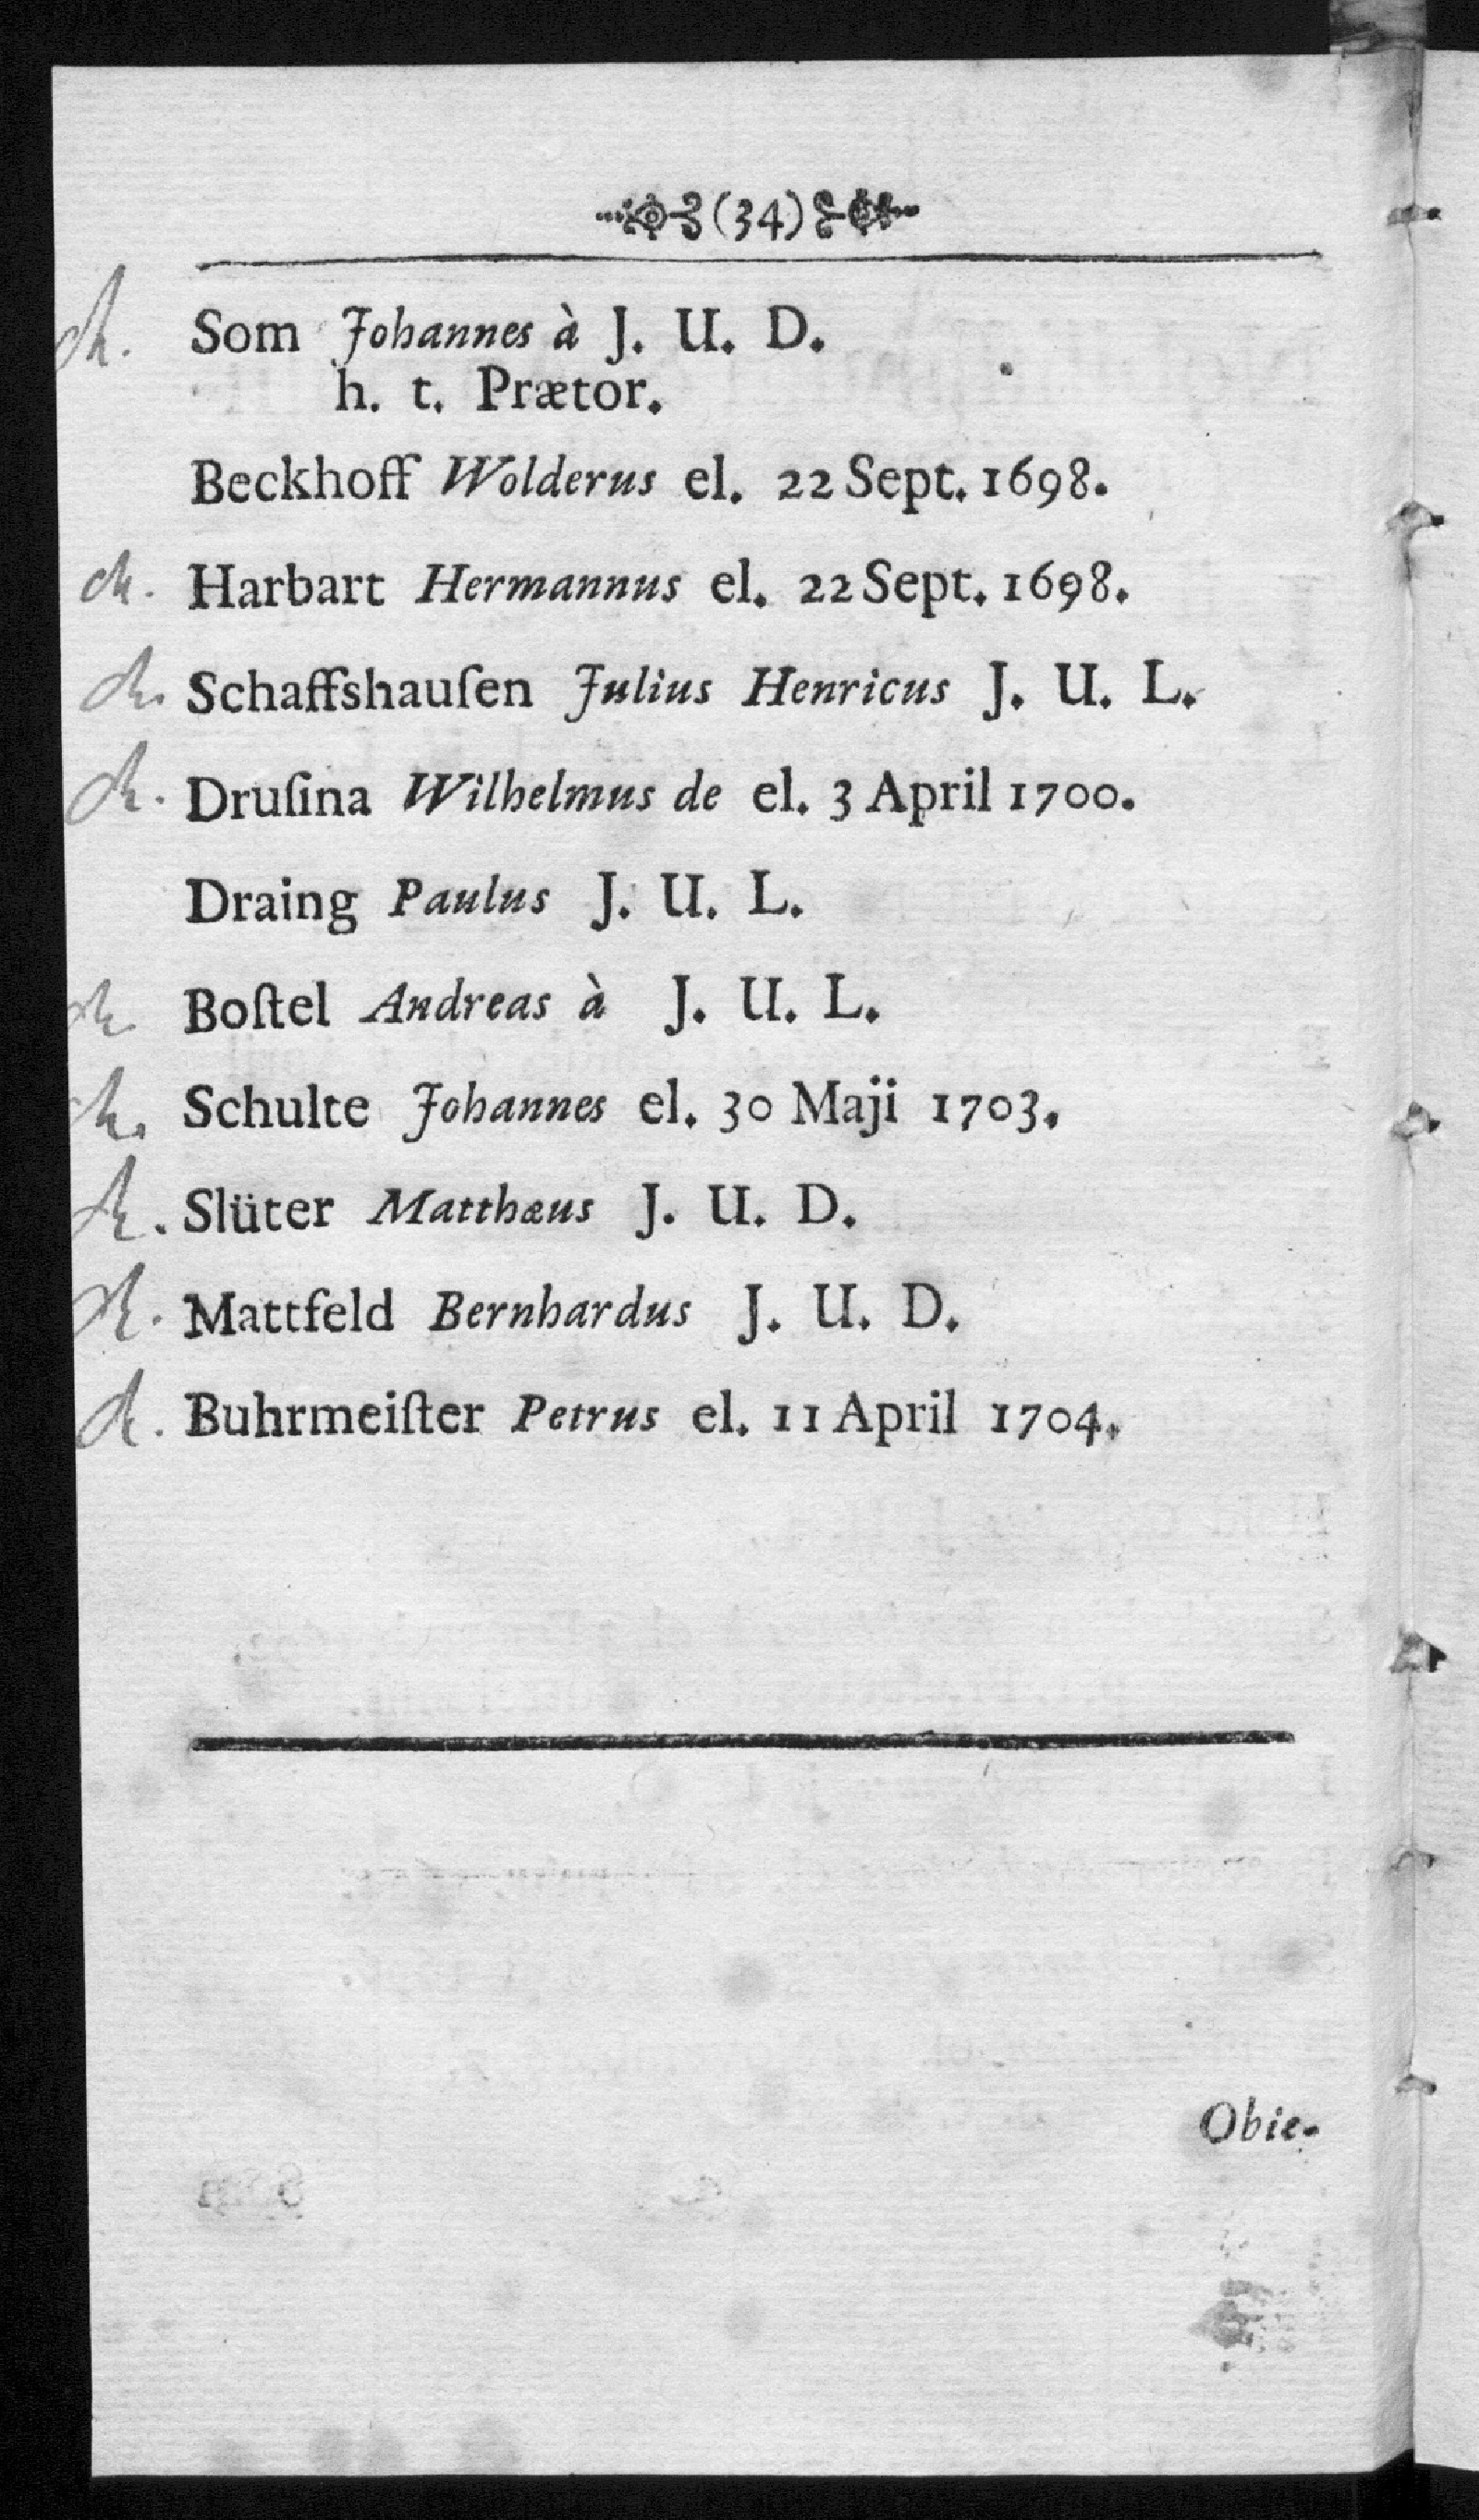 (34)
Som Johannes à J. U. D.
h. t. Prætor.
Beckhoff Wolderus el. 22 Sept. 1698.
Harbart Hermannus el. 22 Sept. 1698.
Schaffshauſen Julius Henricus J. U. L.
Druſina Wilhelmus de el. 3 April 1700.
Draing Paulus J. U. L.
Boſtel Andreas à J. U. L.
Schulte Johannes el. 30 Maji 1703.
Slüter Matthæus J. U. D.
Mattfeld Bernhardus J. U. D.
Buhrmeiſter Petrus el. 11 April 1704.
Obie-